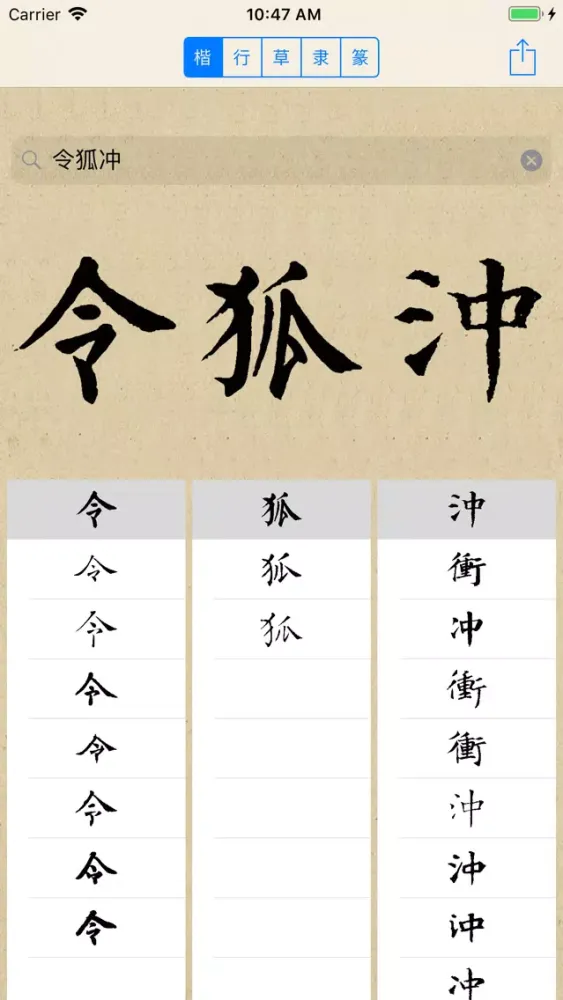 Carrier 10:47 AM
楷 行 草 隶 篆
令狐冲
令狐沖
令 狐 沖
令 狐 衝
令 狐 冲
令 衝
令 衝
令 沖
令 沖
令 沖
沖